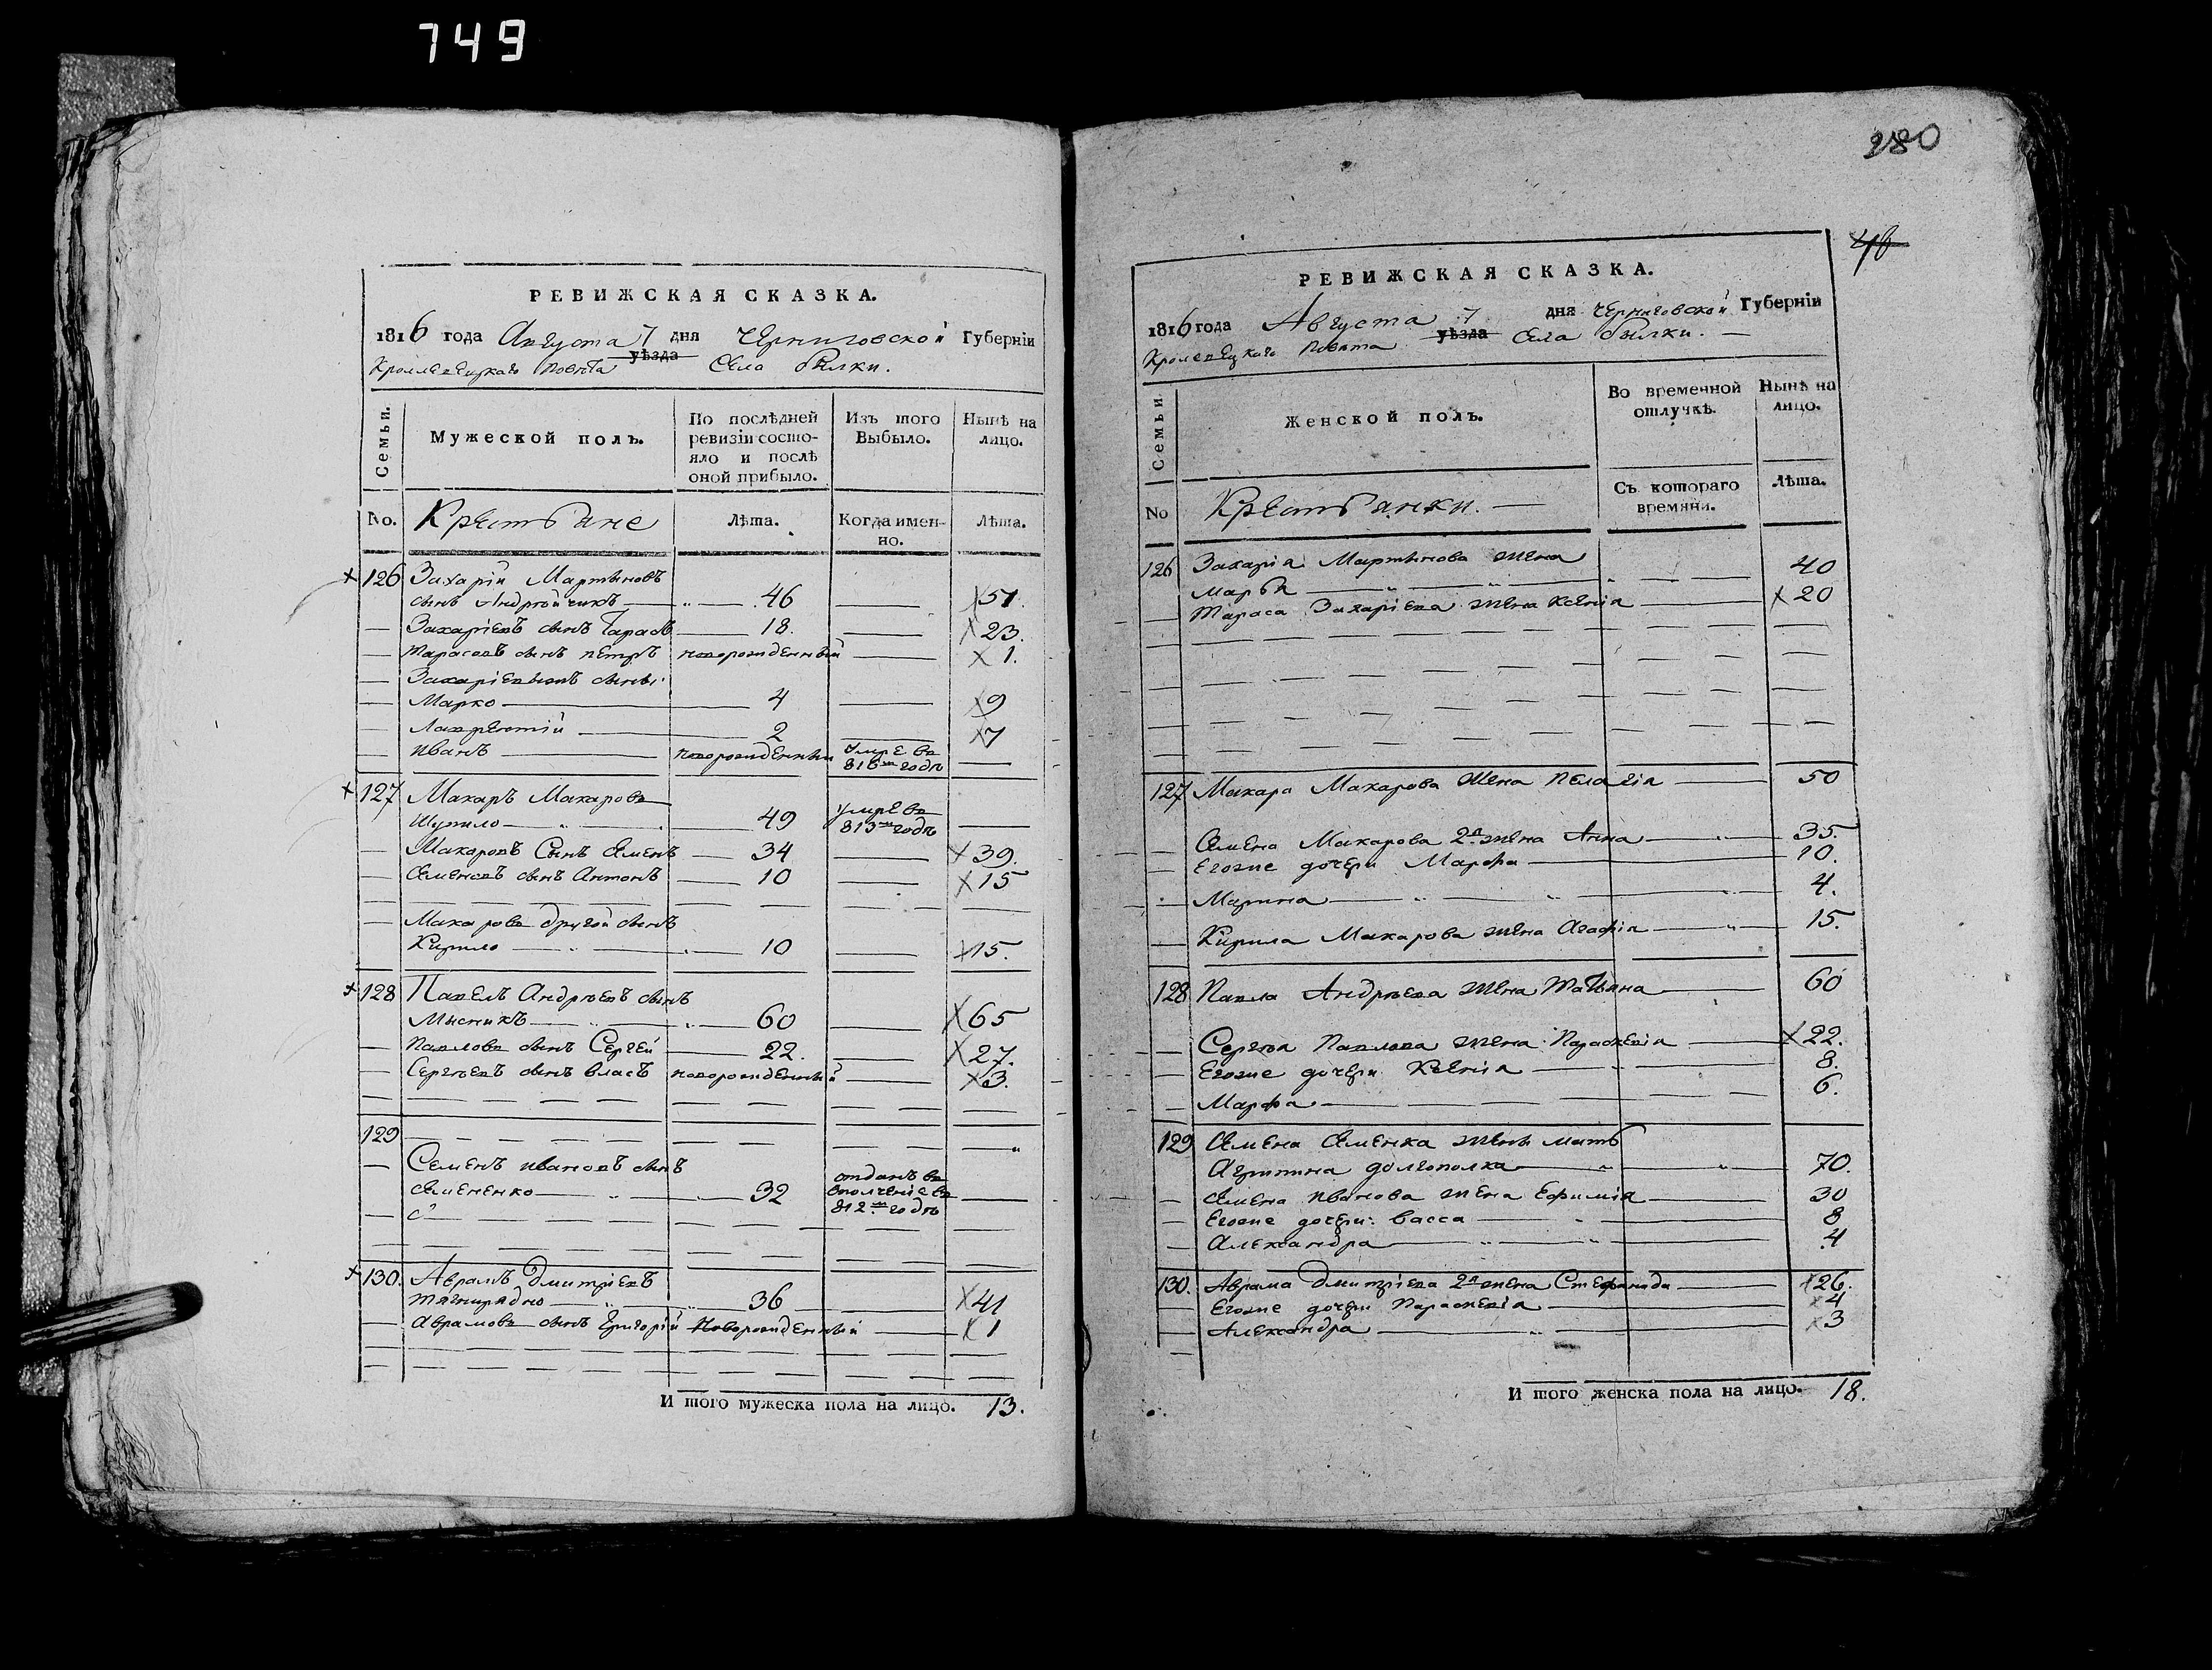 749
РЕВИЖСКАЯ СКАЗКА.
1816 года Августа 7 дня Черниговской Губерніи
Кролевецкаго Повѣта уѣзда Села Билки.
Семьи.
Мужеской полъ.
По послѣдней ревизіи состояло и послѣ оной прибыло.
Изъ того Выбыло.
Нынѣ на лицо.
No. Крестьяне
Лѣта.
Когда именно.
Лѣта.
126 Захарій Мартиновъ
сынъ Андрѣйчикъ 46 51.
Захаріевъ сынъ Тарасъ 18. 23.
Тарасовъ сынъ Петръ новорожденный 1.
Захаріевы сыны
Марко 4 9
Лаврентій 2 7
Иванъ новорожденный умре въ 816м годѣ
127 Макаръ Макаровъ
Шупило 49 умре въ 813м годѣ
Макаровъ Сынъ Семенъ 34 39.
Семеновъ сынъ Антонъ 10 15
Макаровъ другой сынъ
Кирило 10 15.
128 Павелъ Андрѣевъ сынъ
Мысникъ 60 65
Павловъ сынъ Сергей 22. 27.
Сергѣевъ сынъ Власъ новорожденный 3.
129
Семенъ Ивановъ сынъ
Семененко 32 отданъ въ ополченіе въ 812м годѣ
130. Аврамъ Дмитріевъ
Тягнирядно 36 41
Аврамовъ сынъ Григорій Новорожденный 1
И того мужеска пола на лицо. 13.
280
46
РЕВИЖСКАЯ СКАЗКА.
1816 года Августа 7 дня Черниговской Губерніи
Кролевецкаго Повѣта уѣзда Села Билки.
Семьи.
Женской полъ.
Во временной отлучкѣ.
Нынѣ на лицо.
No Крестьянки.
Съ котораго времяни.
Лѣта.
126 Захарія Мартинова жена
Марья 40
Тараса Захаріева жена Ксенія 20
127 Макара Макарова жена Пелагія 50
Семена Макарова 2я жена Анна 35.
Егоже дочери Марфа 10.
Марина 4.
Кирила Макарова жена Агафія 15.
128 Павла Андрѣева жена Татьяна 60
Сергѣя Павлова жена Параскевія 22.
Егоже дочери Ксенія 8.
Марфа 6.
129 Семена Семенка жены мать
Агрипина Долгополка 70.
Семена Иванова жена Ефимія 30
Егоже дочери: Васса 8
Александра 4
130. Аврама Дмитріева 2я жена Стефанида 26.
Егоже дочери Параскевія 4
Александра 3
И того женска пола на лицо. 18.